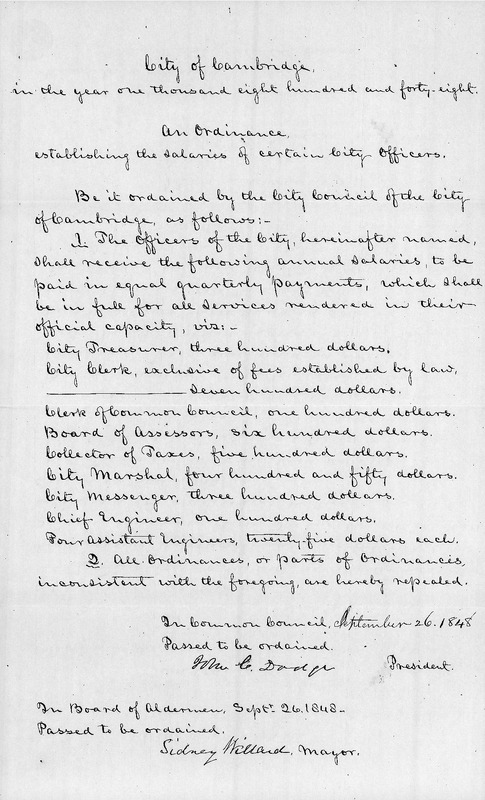 City of Cambridge,
in the year one thousand eight hundred and forty-eight.
An Ordinance,
establishing the salaries of certain City Officers.
Be it ordained by the City Council of the City
of Cambridge, as follows:-
1. The Officers of the City, hereinafter named,
shall receive the following annual salaries, to be
paid in equal quarterly payments, which shall
be in full for all services rendered in their
official capacity, viz:-
City Treasurer, three hundred dollars.
City Clerk, exclusive of fees established by law,
seven hundred dollars.
Clerk of Common Council, one hundred dollars.
Board of Assessors, six hundred dollars.
Collector of Taxes, five hundred dollars.
City Marshal, four hundred and fifty dollars.
City Messenger, three hundred dollars.
Chief Engineer, one hundred dollars.
Four Assistant Engineers, twenty-five dollars each.
2. All Ordinances, or parts of Ordinances,
inconsistent with the foregoing, are hereby repealed.
In Common Council, September 26. 1848
Passed to be ordained.
John C. Dodge President.
In Board of Aldermen, Sept. 26. 1848-
Passed to be ordained.
Sidney Willard, Mayor.